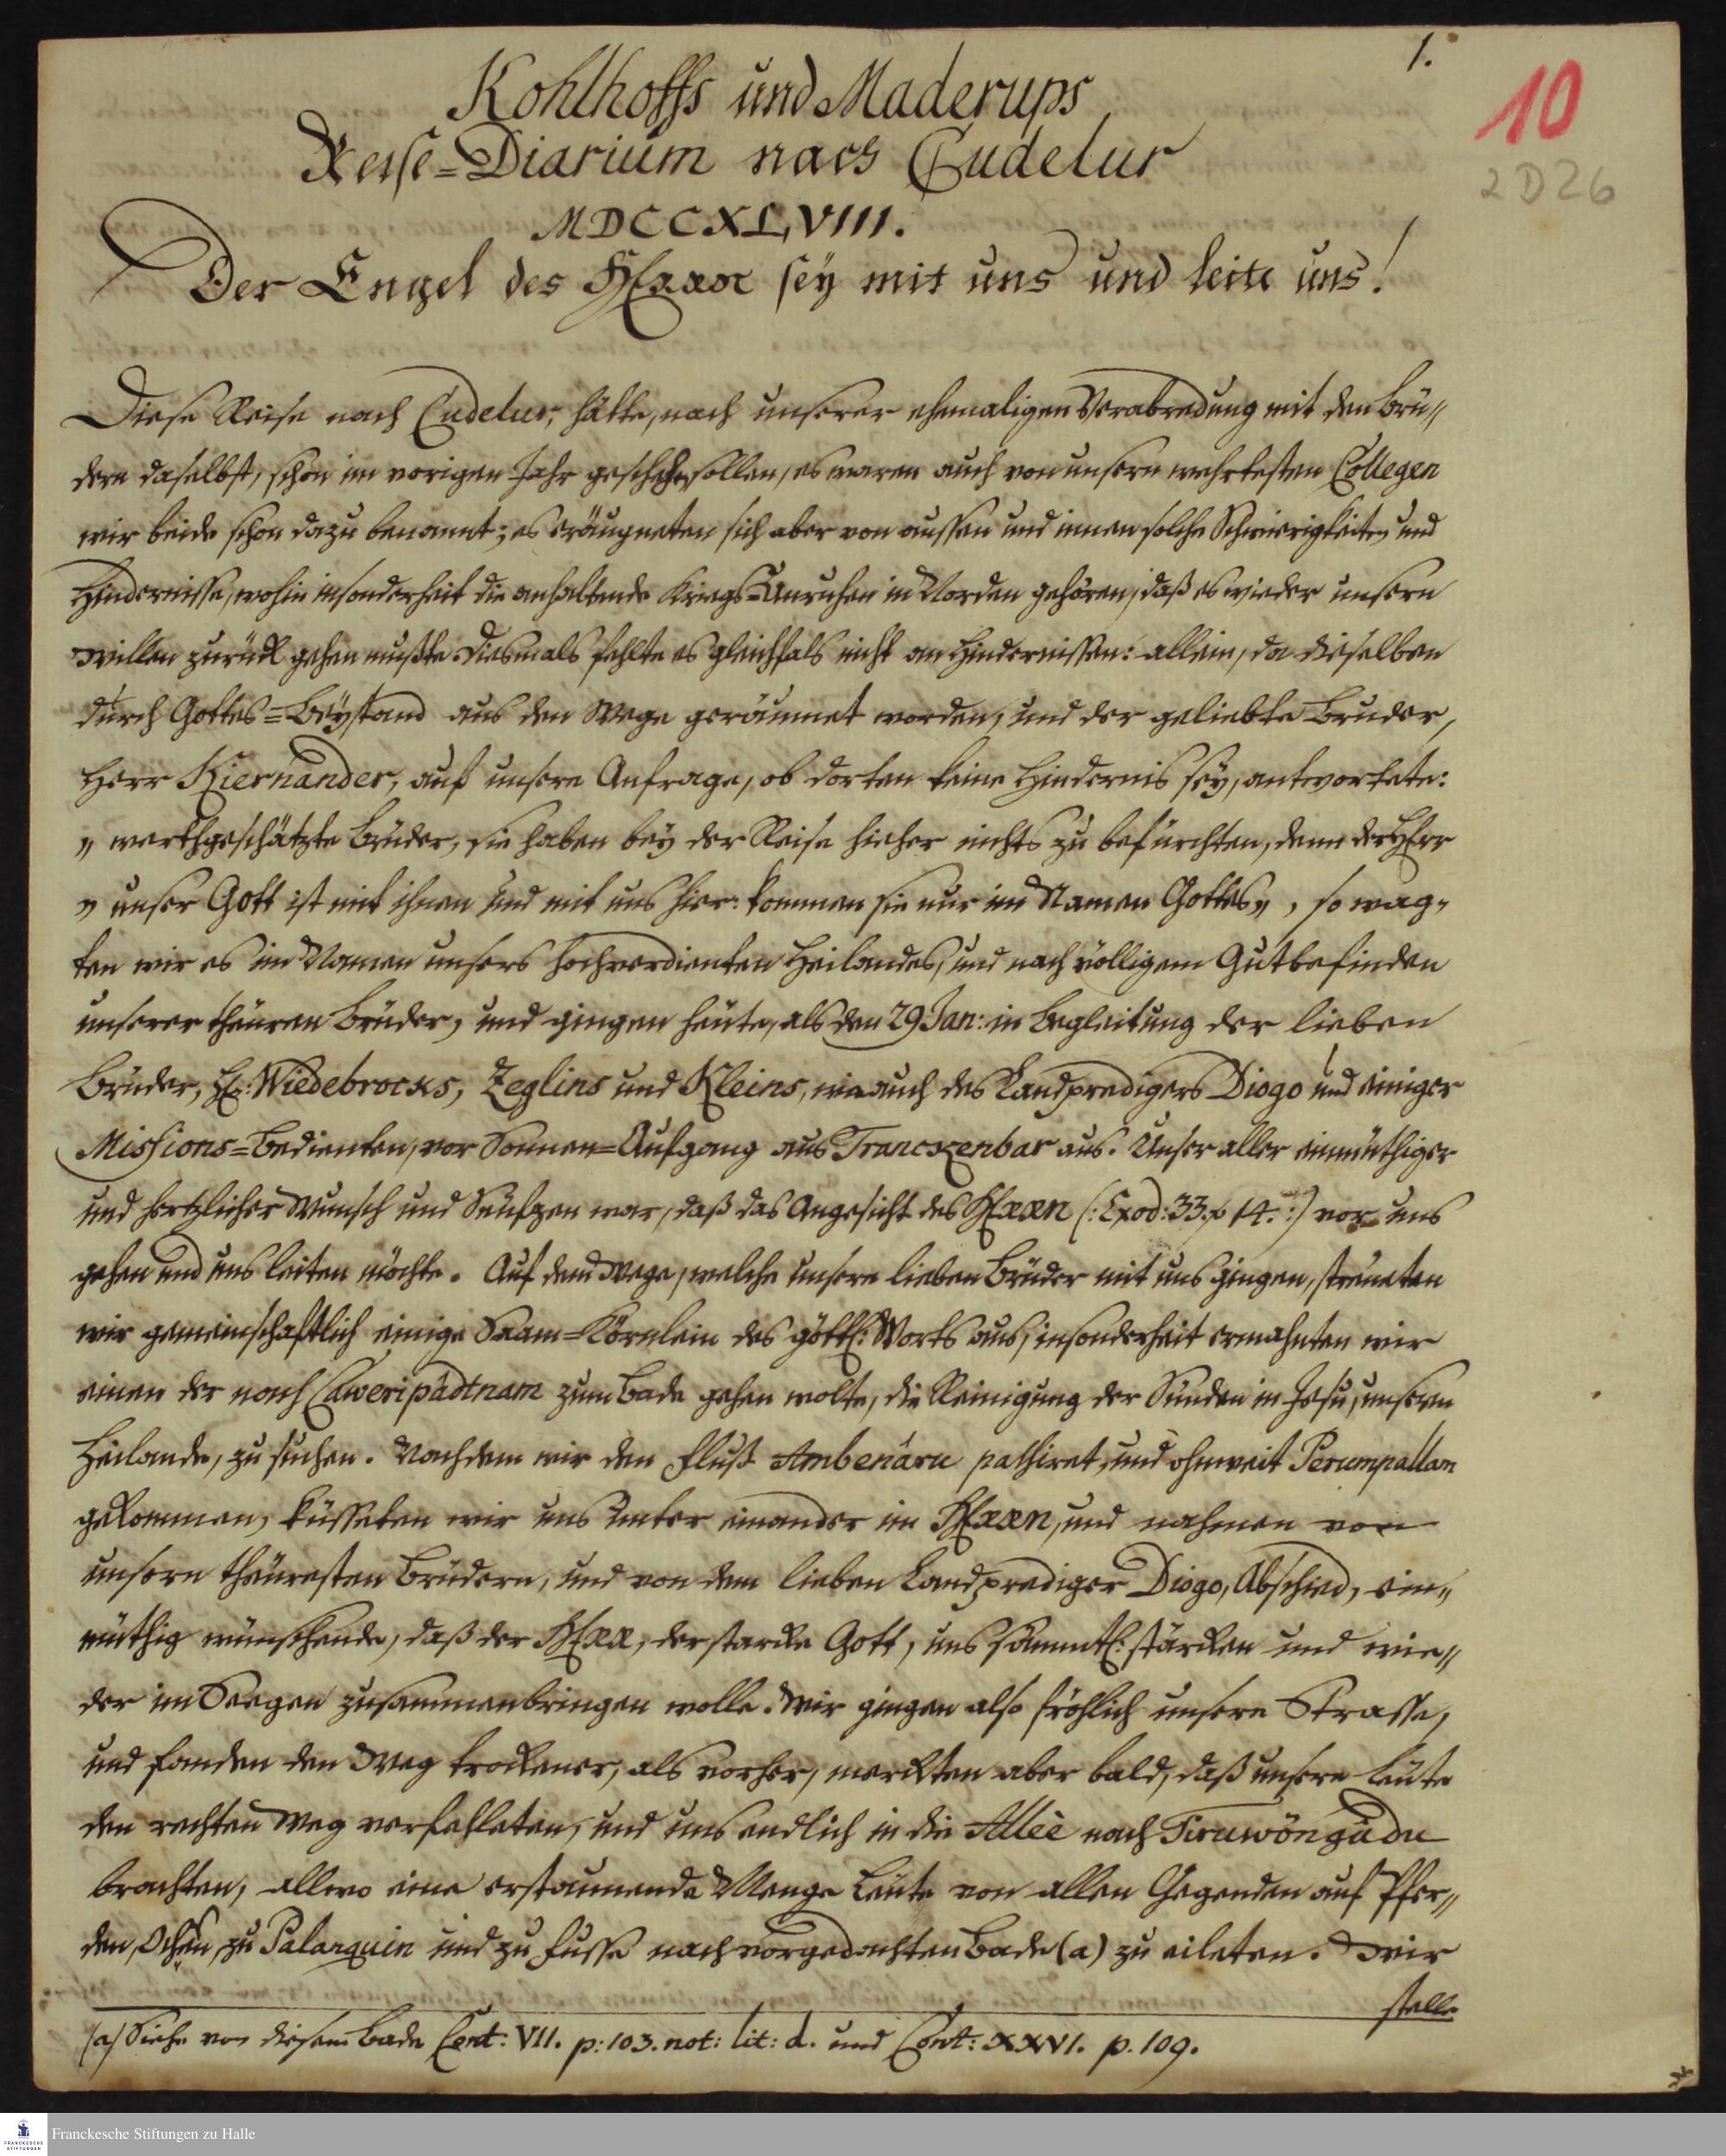 1.
10
2 D 26
Kohlhoffs und Maderups
Reise=Diarium nach Cudelur
MDCCXLVIII.
Der Engel des HErrn sey mit uns und leite uns!
Diese Reise nach Cudelur, hätte, nach unserer ehemaligen Verabredung mit den Brü„
dern daselbst, schon im vorigen Jahr geschehen sollen, es waren auch von unsern wehrtesten Collegen
wir beide schon dazu benannt; es eräugneten sich aber von aussen und innen solche Schwierigkeiten und
Hindernisse, wohin insonderheit die anhaltende Kriegs=Unruhen in Norden gehören, daß es wieder unsern
willen zurück gehen mußte. Diesmals fehlte es gleichfals nicht an Hindernissen: allein, da dieselben
durch Gottes=Beystand aus den Wege geräumet worden, und der geliebte Bruder,
Herr Kiernander, auf unsere Anfrage, ob dorten keine Hindernis sey, antwortete:
„ werthgeschätzte Brüder, sie haben bey der Reise hieher nichts zu befürchten, denn der HErr
„ unser Gott ist mit ihnen und mit uns hier: kommen sie nur im Namen Gottes„, so wag„
ten wir es im Namen unsers hochverdienten Heilandes, und nach völligem Gutbefinden
unserer theuren Brüder, und gingen heute, als den 29 Jan: in Begleitung der lieben
Brüder, H: Wiedebrocks, Zeglins und Kleins, wie auch des Landpredigers Diogo und einiger
Missions=Bedienten, vor Sonnen=Aufgang aus Tranckenbar aus. Unser aller einmüthiger
und hertzlicher Wunsch und Seufzen war, daß das Angesicht des HErrn (: Exod: 33. p 14. :) vor uns
gehen und uns leiten möchte. Auf dem Wege, welche unsere lieben Brüder mit uns gingen, streueten
wir gemeinschaftlich einige Saam=Körnlein des göttl: Worts aus, insonderheit ermahnten wir
einen der nach Caweripadtnam zum Bade gehen wolte, die Reinigung der Sünden in Jesu, unserm
Heilande, zu suchen. Nachdem wir den Fluß Ambenáru passiret, und ohnweit Perumpallam
gekommen, küsseten wir uns unter einander im HErrn, und nahmen von
unsern theuresten Brüdern, und von dem lieben Landprediger Diogo, Abschied, ein„
müthig wünschende, daß der HErr, der starcke Gott, uns sämmtl: stärcken und wie„
der im Seegen zusammenbringen wolle. Wir gingen also fröhlich unsere Strasse,
und fanden den Weg trockener, als vorher, merckten aber bald, daß unsere Leute
den rechten Weg verfehleten, und uns endlich in die Allée nach Tiruwöngúdu
brachten, allwo eine erstaunende Menge Leute von allen Gegenden auf Pfer„
den, Ochsen, zu Palanquin und zu Fusse nach vorgedachten Bade (a) zu eileten. Wir
stelle
(a) Siehe von diesem Bade Cont: VII. p: 103. not: lit: d. und Cont: XXVI. p. 109.
Franckesche Stiftungen zu Halle